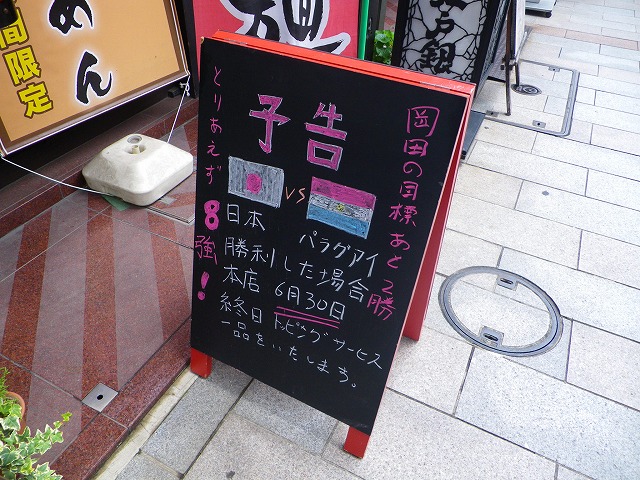 めん
間限定
予告
岡田の目標あと2勝
とりあえず8強!
VS
日本
パラグアイ
勝利した場合
本店 6月30日
終日 トッピングサービス
一品をいたします。